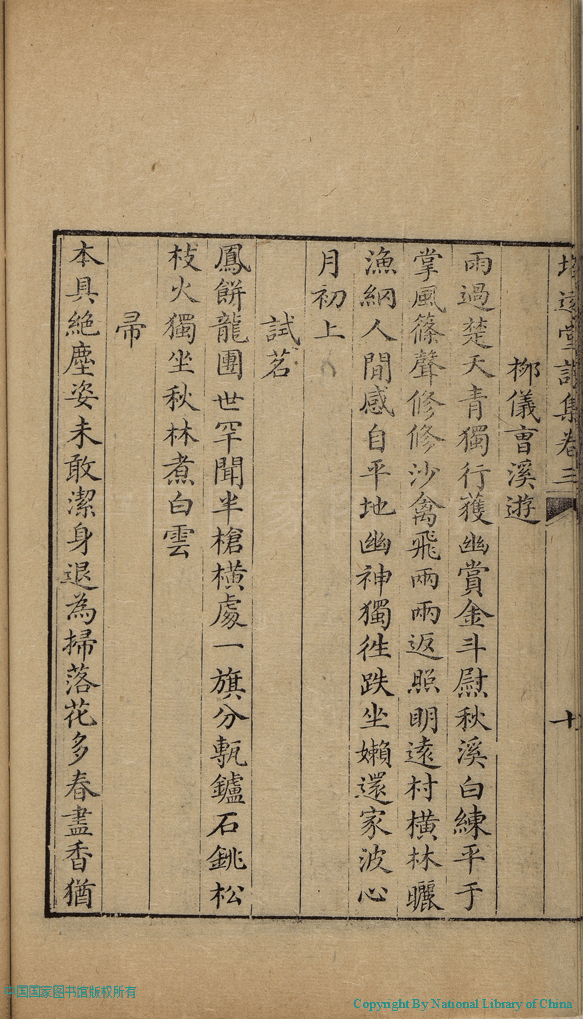 堂詩集卷三
十
柳儀曺溪遊
雨過楚天青獨行獲幽賞金斗熨秋溪白練平于
掌風篠聲修修沙禽飛兩兩返照明遠村橫林曬
漁網人間感自平地幽神獨徃趺坐嬾還家波心
月初上
試茗
鳳餅龍團世罕聞半槍橫處一旗分甎鑪石銚松
枝火獨坐秋林煮白雲
帚
本具絕塵姿未敢潔身退為掃落花多春盡香猶
中国国家图书馆版权所有
Copyright By National Library of China